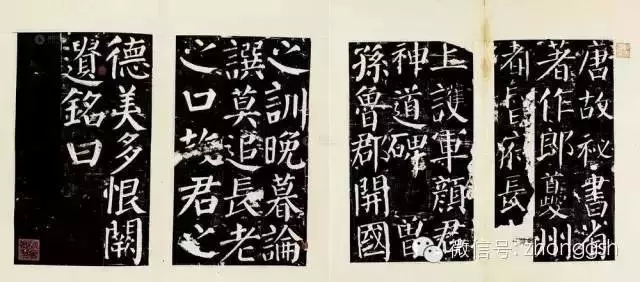 唐故秘書省
著作郎夔州
都督府長
上護軍顏君
神道碑 曾
孫魯郡開國
之訓晚暮論
譔莫追長老
之口故君之
德美多恨闕
遺銘曰
微信号: zhonggsh